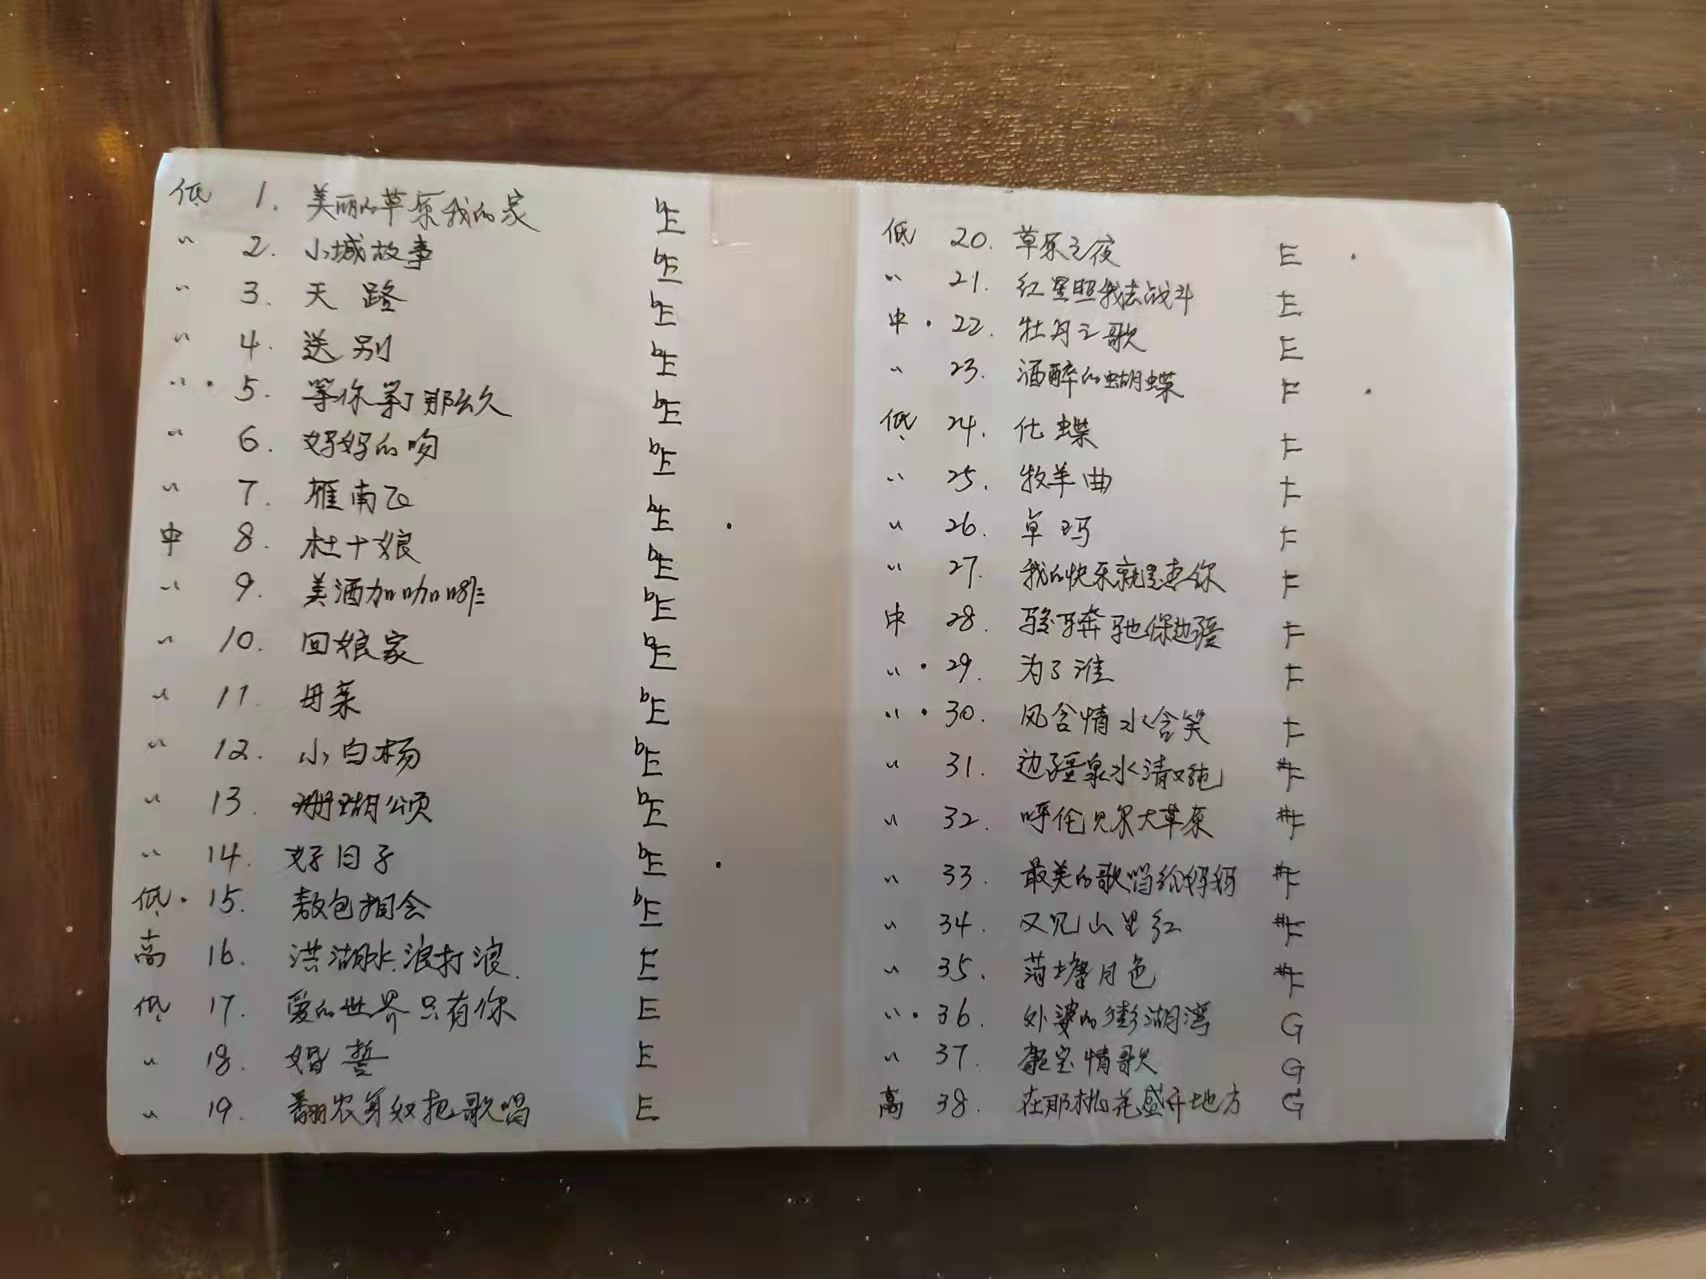 低 1. 美丽的草原我的家 bE
〃 2. 小城故事 bE
〃 3. 天路 bE
〃 4. 送别 bE
〃 · 5. 等你等了那么久 bE
〃 6. 好好的吻 bE
〃 7. 雁南飞 bE
中 8. 杜十娘 bE
〃 9. 美酒加咖啡 bE
〃 10. 回娘家 bE
〃 11. 母亲 bE
〃 12. 小白杨 bE
〃 13. 珊瑚颂 bE
〃 14. 好日子 bE
低 · 15. 敖包相会 bE
高 16. 洪湖水浪打浪 E
低 17. 爱的世界只有你 E
〃 18. 婚誓 E
〃 19. 翻农奴把歌唱 E
低 20. 草原之夜 E
〃 21. 红星照我去战斗 E
中 · 22. 牡丹之歌 E
〃 23. 酒醉的蝴蝶 F
低 24. 化蝶 F
〃 25. 牧羊曲 F
〃 26. 卓玛 F
〃 27. 我的快乐就是想你 F
中 28. 骏马奔驰保边疆 F
〃 · 29. 为了谁 F
〃 · 30. 风含情水含笑 F
〃 31. 边疆泉水清又纯 #F
〃 32. 呼伦贝尔大草原 #F
〃 33. 最美的歌唱给妈妈 #F
〃 34. 又见山里红 #F
〃 35. 荷塘月色 #F
〃 · 36. 外婆的澎湖湾 G
〃 37. 康定情歌 G
高 38. 在那桃花盛开地方 G